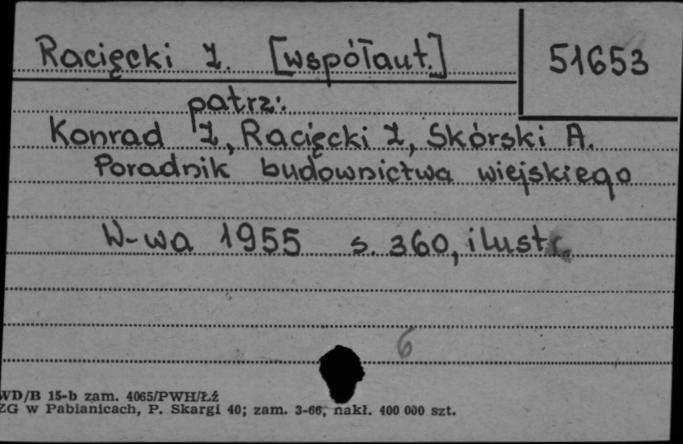 Racięcki Z. [współaut.]
51653
patrz:
Konrad Z, Racięcki Z, Skórski A.
Poradnik budownictwa wiejskiego
W-wa 1955 s. 360, ilustr.
6
WD/B 15-b zam. 4065/PWH/Łź
ZG w Pabianicach, P. Skargi 40; zam. 3-66, nakł. 400 000 szt.